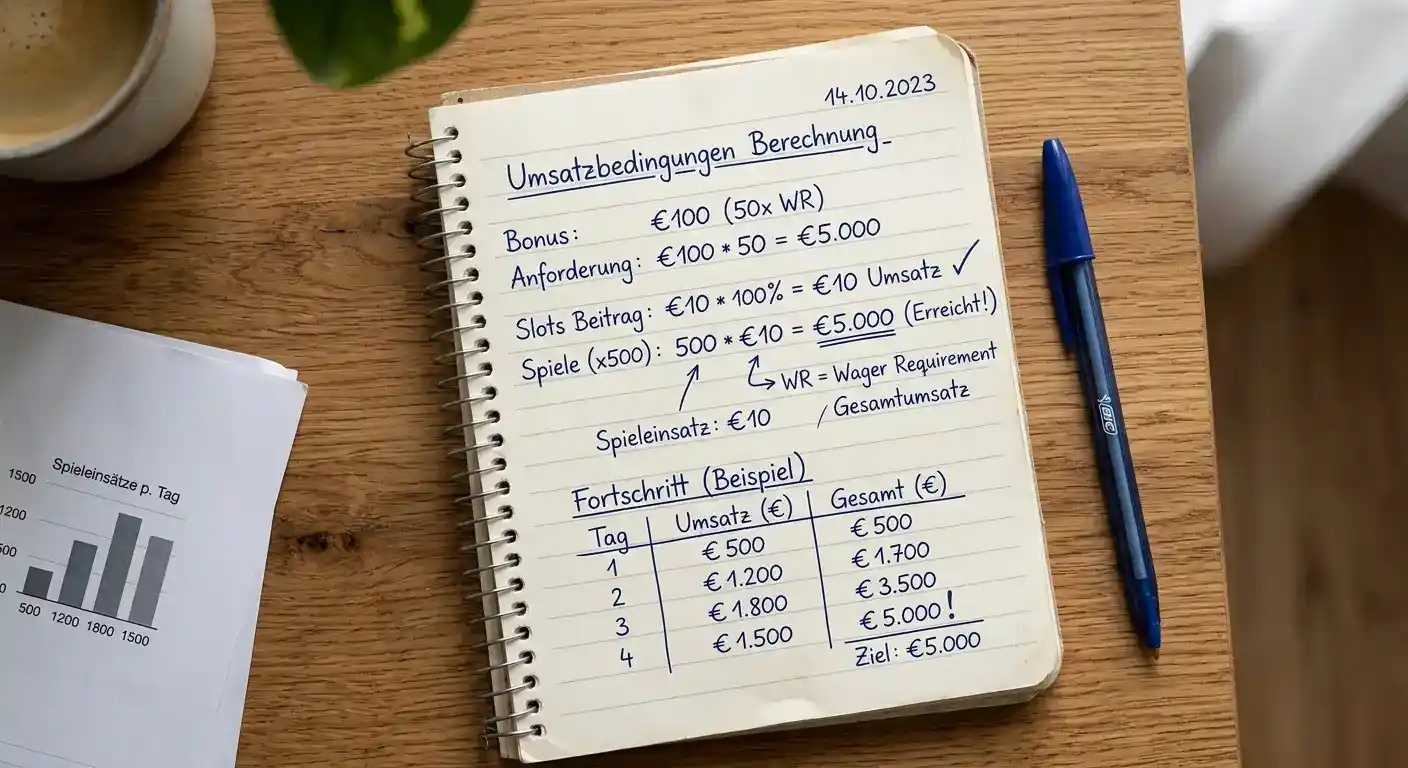 14.10.2023
Umsatzbedingungen Berechnung
Bonus: €100 (50x WR)
Anforderung: €100 * 50 = €5.000
Slots Beitrag: €10 * 100% = €10 Umsatz ✓
Spiele (x500): 500 * €10 = €5.000 (Erreicht!)
WR = Wager Requirement
Spieleinsatz: €10 / Gesamtumsatz
Fortschritt (Beispiel)
Tag Umsatz (€) Gesamt (€)
1 €500 €500
2 €1.200 €1.700
3 €1.800 €3.500
4 €1.500 €5.000!
Ziel: €5.000
Spieleinsätze p. Tag
1500
1200
500
0
500 1200 1800 1500
BIC